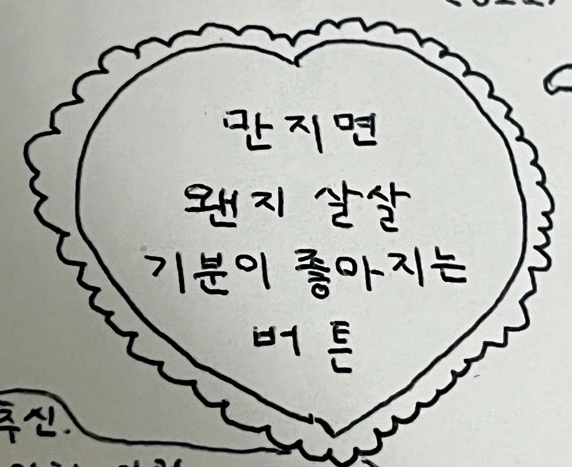 만지면
왠지 살살
기분이 좋아지는
버튼
추신.